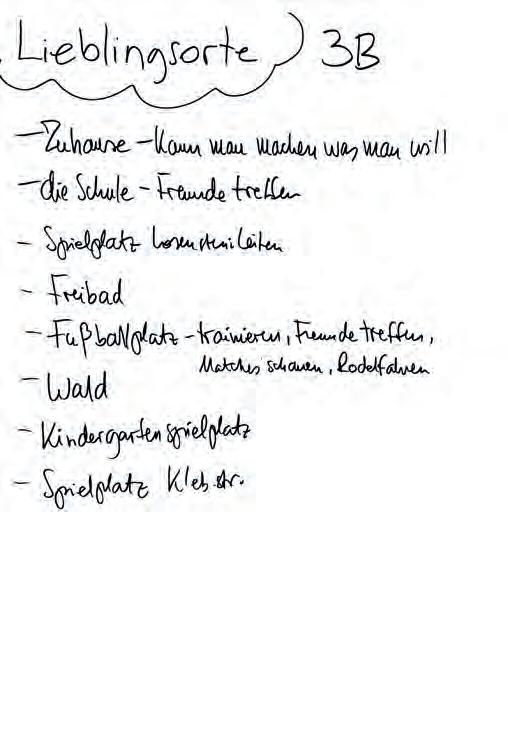 Lieblingsorte 3B
- Zuhause - Kann man machen was man will
- die Schule - Freunde treffen
- Spielplatz
- Freibad
- Fußballplatz - trainieren, Freunde treffen,
Matches schauen, Rodelfahren
- Wald
- Kindergartenspielplatz
- Spielplatz Kleb.str.